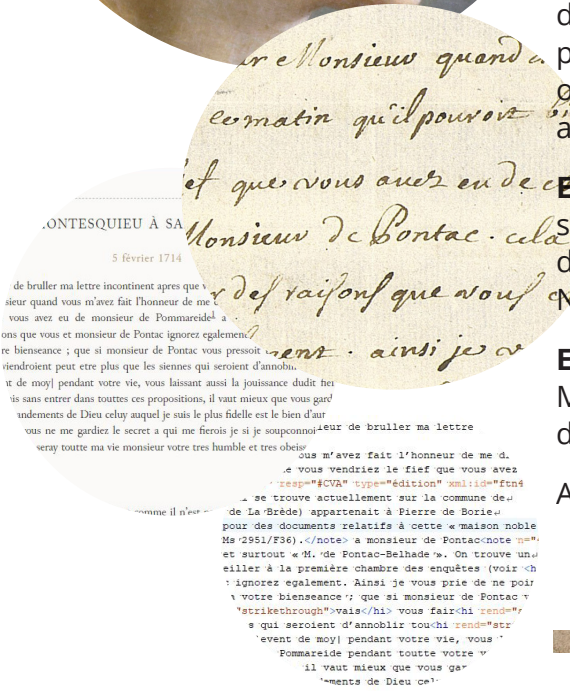 Monsieur quand
matin qu'il pouvoit
que vous auez eu de
Monsieur de Pontac . cela
des raisons que vous
ainsi je
ONTESQUIEU À SA
5 février 1714
de bruller ma lettre incontinent apres que
sieur quand vous m'avez fait l'honneur de me
vous avez eu de monsieur de Pommareide
ons que vous et monsieur de Pontac ignorez egalement
re bienseance ; que si monsieur de Pontac vous pressoit
viendroient peut etre plus que les siennes qui seroient d'annobli
nt de moy| pendant votre vie, vous laissant aussi la jouissance dudit fief
is sans entrer dans touttes ces propositions, il vaut mieux que vous gard
andements de Dieu celuy auquel je suis le plus fidelle est le bien d'aut
vous ne me gardiez le secret a qui me fierois je si je soupconnoi
seray toutte ma vie monsieur votre tres humble et tres obeiss
comme il n'est
ieur de bruller ma lettre
ous m'avez fait l'honneur de me d
e vous vendriez le fief que vous avez
resp="#CVA" type="édition" xml:id="ftn4
i se trouve actuellement sur la commune de↵
de La Brède) appartenait à Pierre de Borie↵
pour des documents relatifs à cette « maison noble
Ms 2951/F36).</note> a monsieur de Pontac<note n="
et surtout « M. de Pontac-Belhade ». On trouve un↵
eiller à la première chambre des enquêtes (voir <h
ignorez egalement. Ainsi je vous prie de ne poin
votre bienseance ; que si monsieur de Pontac
"strikethrough">vais</hi> vous fair<hi rend="
s qui seroient d'annoblir tou<hi rend="str
event de moy| pendant votre vie, vous
Pommareide pendant toutte votre
il vaut mieux que vous gar
ements de Dieu cel
d
p
a
E
s
d
N
E
M
d
A